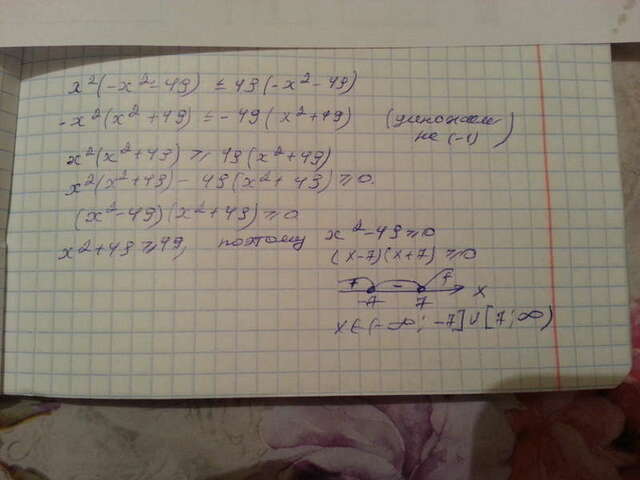 x²(-x²-49) ≤ 49(-x²-49)
-x²(x²+49) ≤ -49(x²+49) (умножаем
на (-1))
x²(x²+49) ≥ 49(x²+49)
x²(x²+49) - 49(x²+49) ≥ 0.
(x²-49)(x²+49) ≥ 0
x²+49 ≥ 49, поэтому x²-49 ≥ 0
(x-7)(x+7) ≥ 0
+ - +
-7 7 x
x ∈ (-∞; -7] ∪ [7; ∞)